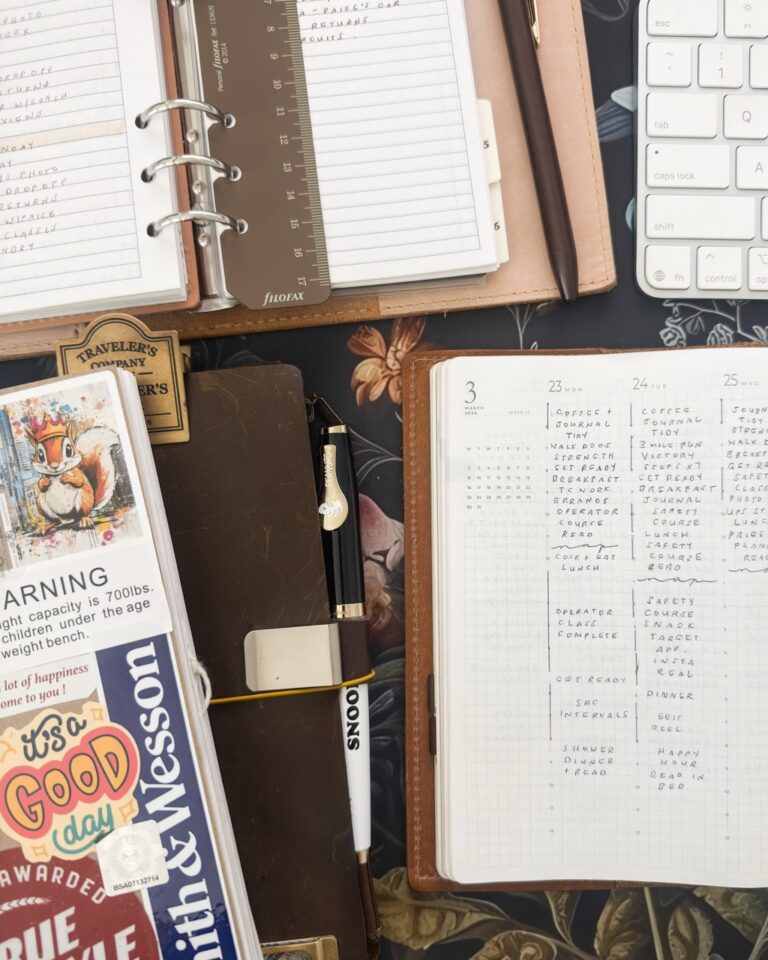 PHOTO
DROP OFF
RETURNS
PHOTO
DROP OFF
RETURNS
W/PAIGE
CLASSES
Personal filofax Ref 133609
© 2014
7
8
9
10
11
12
13
14
15
16
17
filofax
- PAIGE'S CAR
RETURNS
esc
F1
~
`
!
1
tab
Q
caps lock
A
shift
fn
control
TRAVELER'S
COMPANY
ARNING
ght capacity is 700lbs.
children under the age
weight bench.
lot of happiness
come to you !
it's a
GOOD
day
AWARDED
RUE
BSA07132714
ith & Wesson
PEANUTS
SNOO
3
MARCH
23 MON
COFFEE +
JOURNAL
TIDY
WALK DOGS
STRENGTH
GET READY
BREAKFAST
TC WORK
ERRANDS
OPERATOR
COURSE
READ
nap
COOK + EAT
LUNCH
OPERATOR
CLASS
COMPLETE
GET READY
INTERVALS
SHOWER
DINNER
+ READ
24 TUE
COFFEE
JOURNAL
TIDY
3 MILE RUN
VICTORY
STEPS x7
GET READY
BREAKFAST
JOURNAL
SAFETY
COURSE
LUNCH
SAFETY
COURSE
READ
nap
SAFETY
COURSE
SNACK
TARGET
APP.
INSTA
REAL
DINNER
EDIT
REEL
HAPPY
HOUR
READ IN
BED
25 WED
JOURN
TIDY
STREN
WALK D
BREAKF
GET RE
SAFET
CLASS
PHOTO
UPS ST
LUNC
PAIGE
PLAN
REA